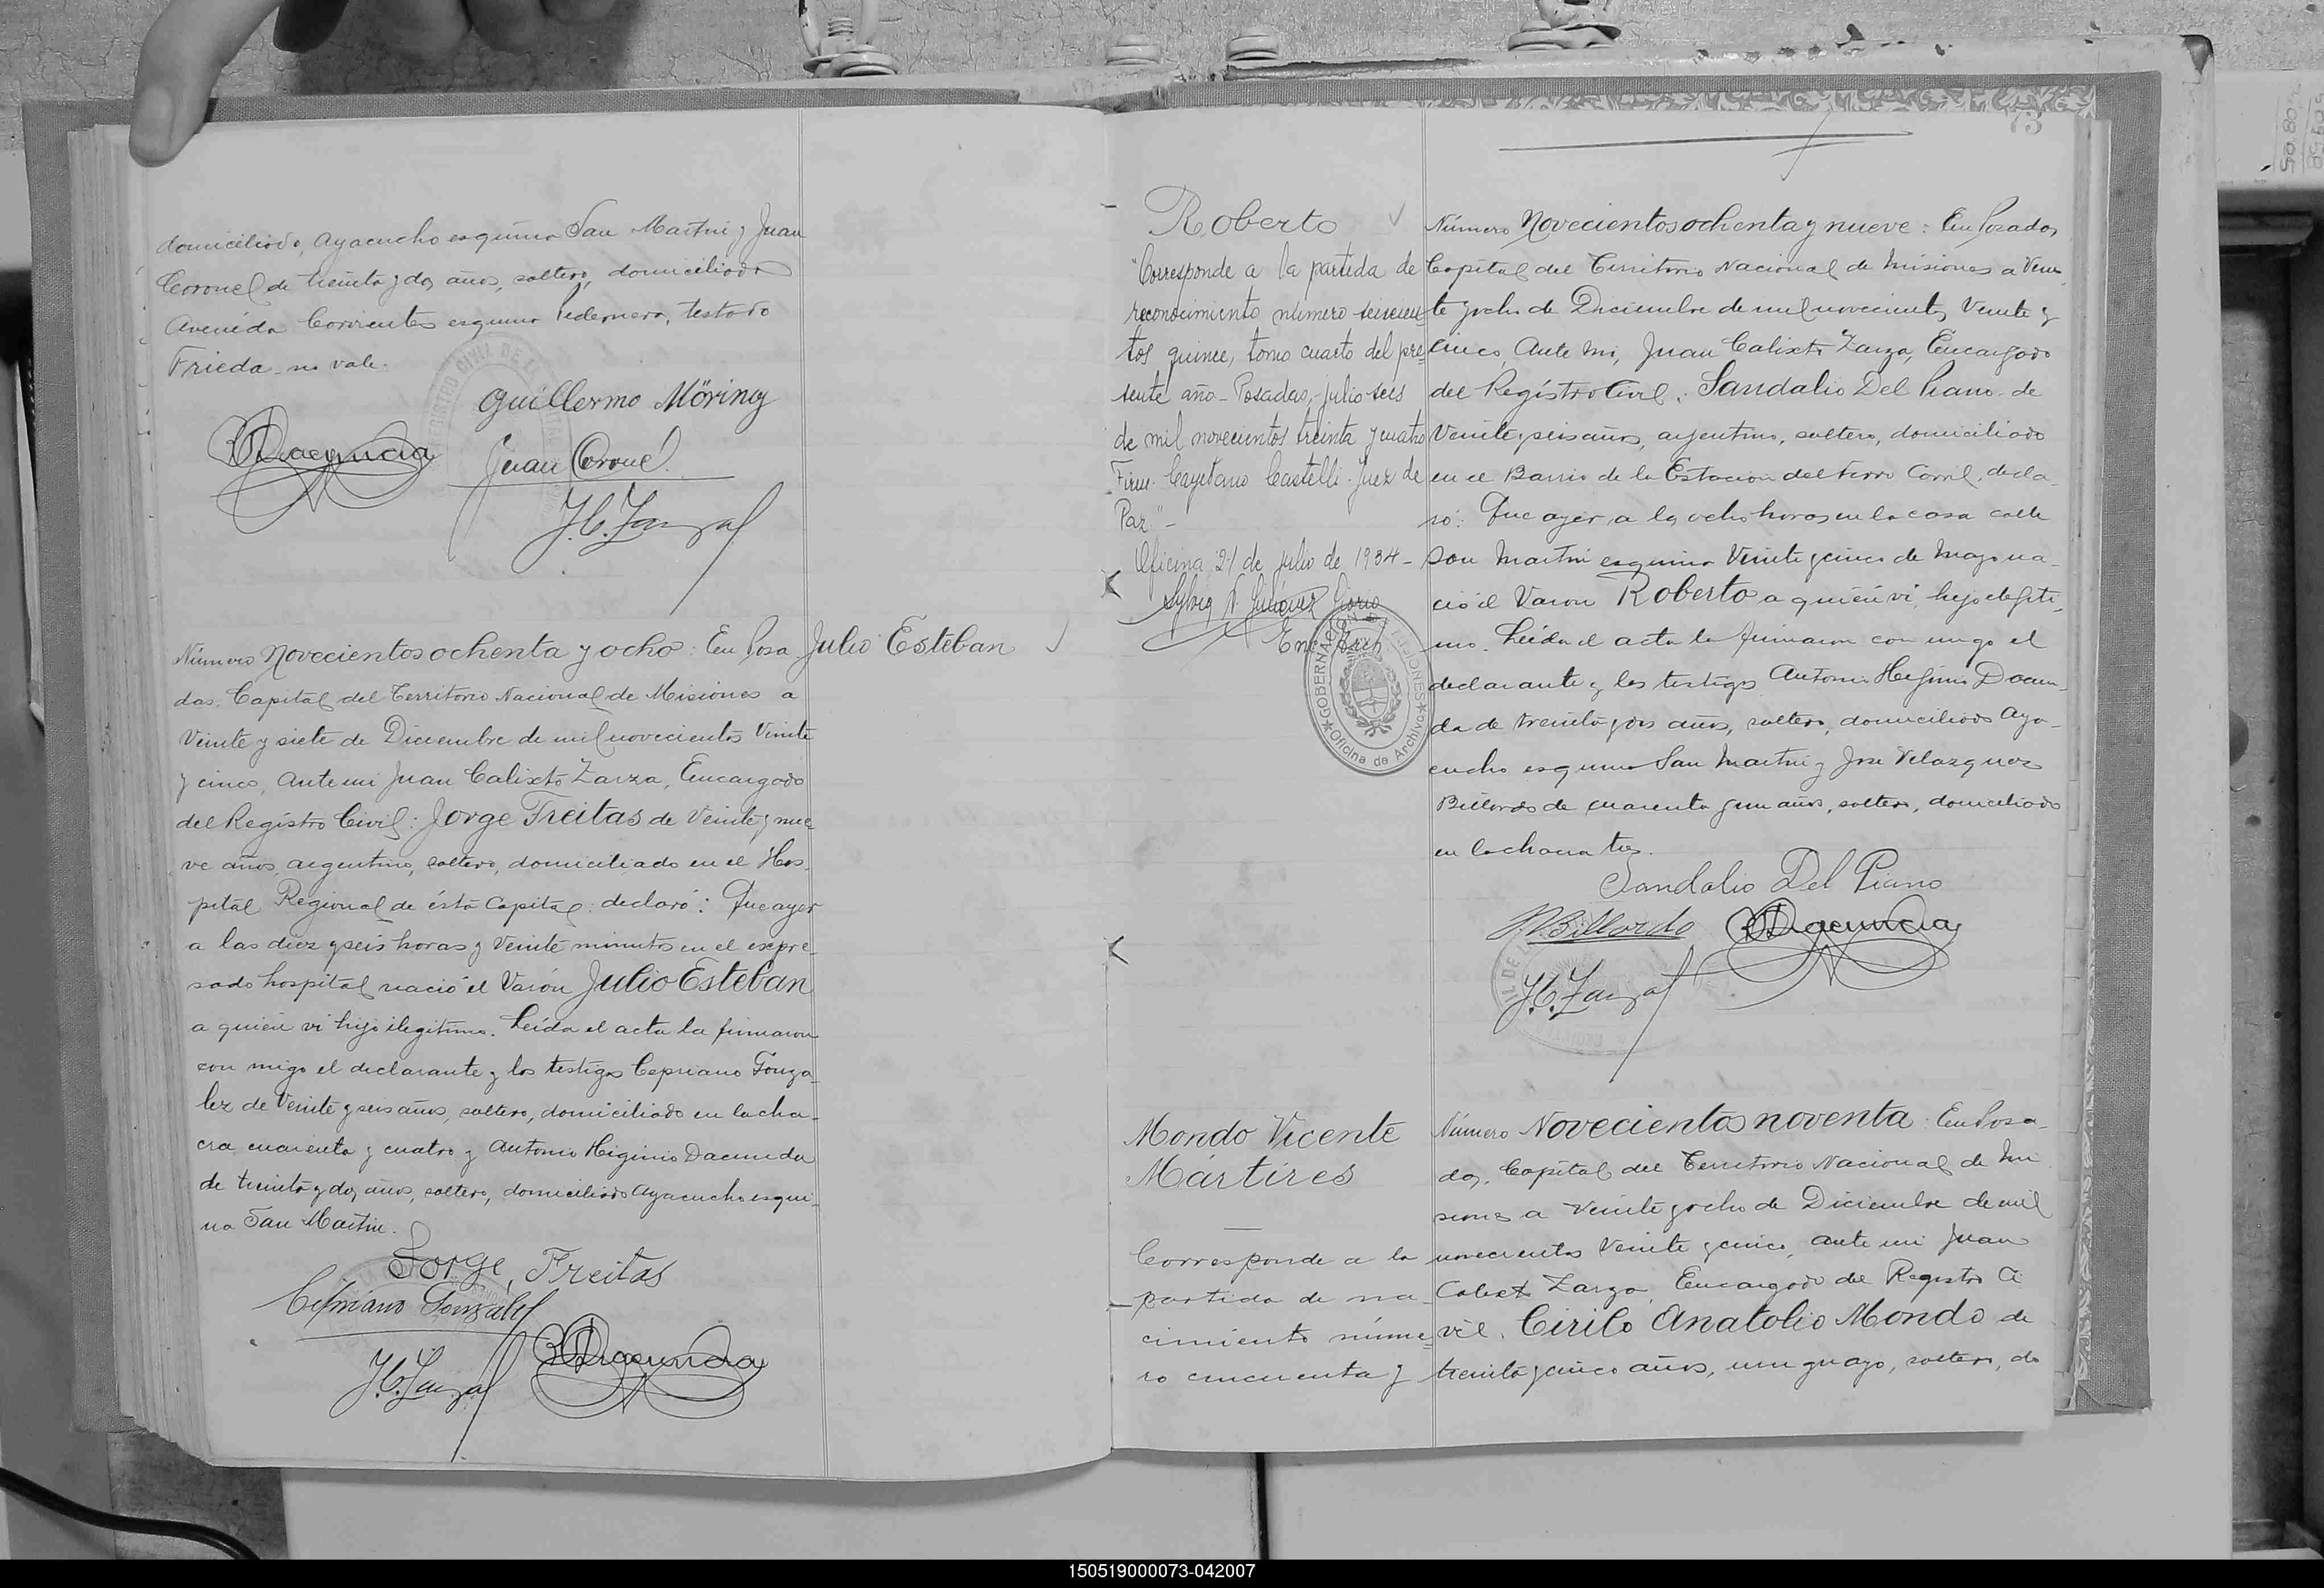 domiciliado, Ayacucho esquina San Martin y Juan
Coronel de treinta y dos años, soltero, domiciliado
Avenida Corrientes esquina Pedernera, testado
Frieda no vale.
Guillermo Möring
Juan Coronel
Número Novecientos ochenta y ocho: En Posa
das, Capital del Territorio Nacional de Misiones a
Veinte y siete de Diciembre de mil novecientos Veinte
y cinco, Ante mi Juan Calixto Zarza, Encargado
del Registro Civil: Jorge Freitas de Veinte y nue
ve años, argentino, soltero, domiciliado en el Hos
pital Regional de ésta Capital: declaró: Que ayer
a las diez y seis horas y Veinte minutos en el expre
sado hospital nació el Varón Julio Esteban
a quien vi hijo ilegitimo. Leída el acta la firmaron
con migo el declarante y los testigos Cipriano Gonza
lez de Veinte y seis años, soltero, domiciliado en la cha-
cra cuarenta y cuatro y Antonio Higinio Dacunda
de treinta y dos años, soltero, domiciliado Ayacucho esqui
na San Martin.
Jorge Freitas
Cipriano Gonzalez
Julio Esteban
73
Roberto
"Corresponde a la partida de
reconocimiento número seiscien
tos quince, tomo cuarto del pre=
sente año - Posadas, julio seis
de mil novecientos treinta y cuatro
Firm. Cayetano Castelli. Juez de
Paz" -
Oficina, 21 de julio de 1934 -
Enc.
GOBERNACION MISIONES
Oficina de Archivo
Número Novecientos ochenta y nueve: En Posadas
Capital del Territorio Nacional de Misiones a Vein
te y ocho de Diciembre de mil novecientos Veinte y
cinco, Ante mi, Juan Calixto Zarza, Encargado
del Registro Civil, Sandalio Del Piano de
Veinte y seis años, argentino, soltero, domiciliado
en el Barrio de la Estacion del Ferro Carril, decla-
ró: Que ayer, a las ocho horas en la casa calle
San Martin esquina Veinte y cinco de Mayo na-
ció el Varon Roberto a quien vi, hijo ilegíti
mo. Leída el acta la firmaron con migo el
declarante y los testigos Antonio Higinio Dacun-
da de treinta y dos años, soltero, domiciliado Aya-
cucho esquina San Martin y Jose Velazquez
Billordo de cuarenta y un años, soltero, domiciliado
en la chacra tres.
Sandalio Del Piano
Billordo
Mondo Vicente
Mártires
Corresponde a la
partida de na-
cimiento núme=
ro cincuenta y
Número Novecientos noventa: En Posa-
das, Capital del Territorio Nacional de Mi
siones a Veinte y ocho de Diciembre de mil
novecientos Veinte y cinco, Ante mi Juan
Calixto Zarza, Encargado del Registro Ci
vil, Cirilo Anatolio Mondo de
treinta y cinco años, uruguayo, soltero, do
150519000073-042007